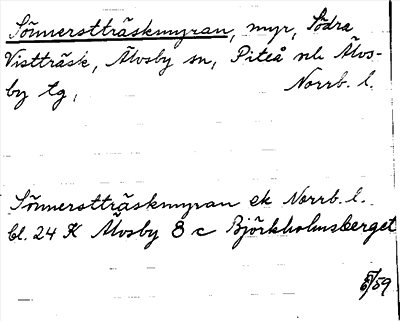 Sönnerstträskmyran, myr, Södra
Vistträsk, Älvsby sn, Piteå o. Älvs-
by tg, Norrb. l.
Sönnerstträskmyran ek Norrb. l.
bl. 24 K Älvsby 8 c Björkholmsberget
5/59